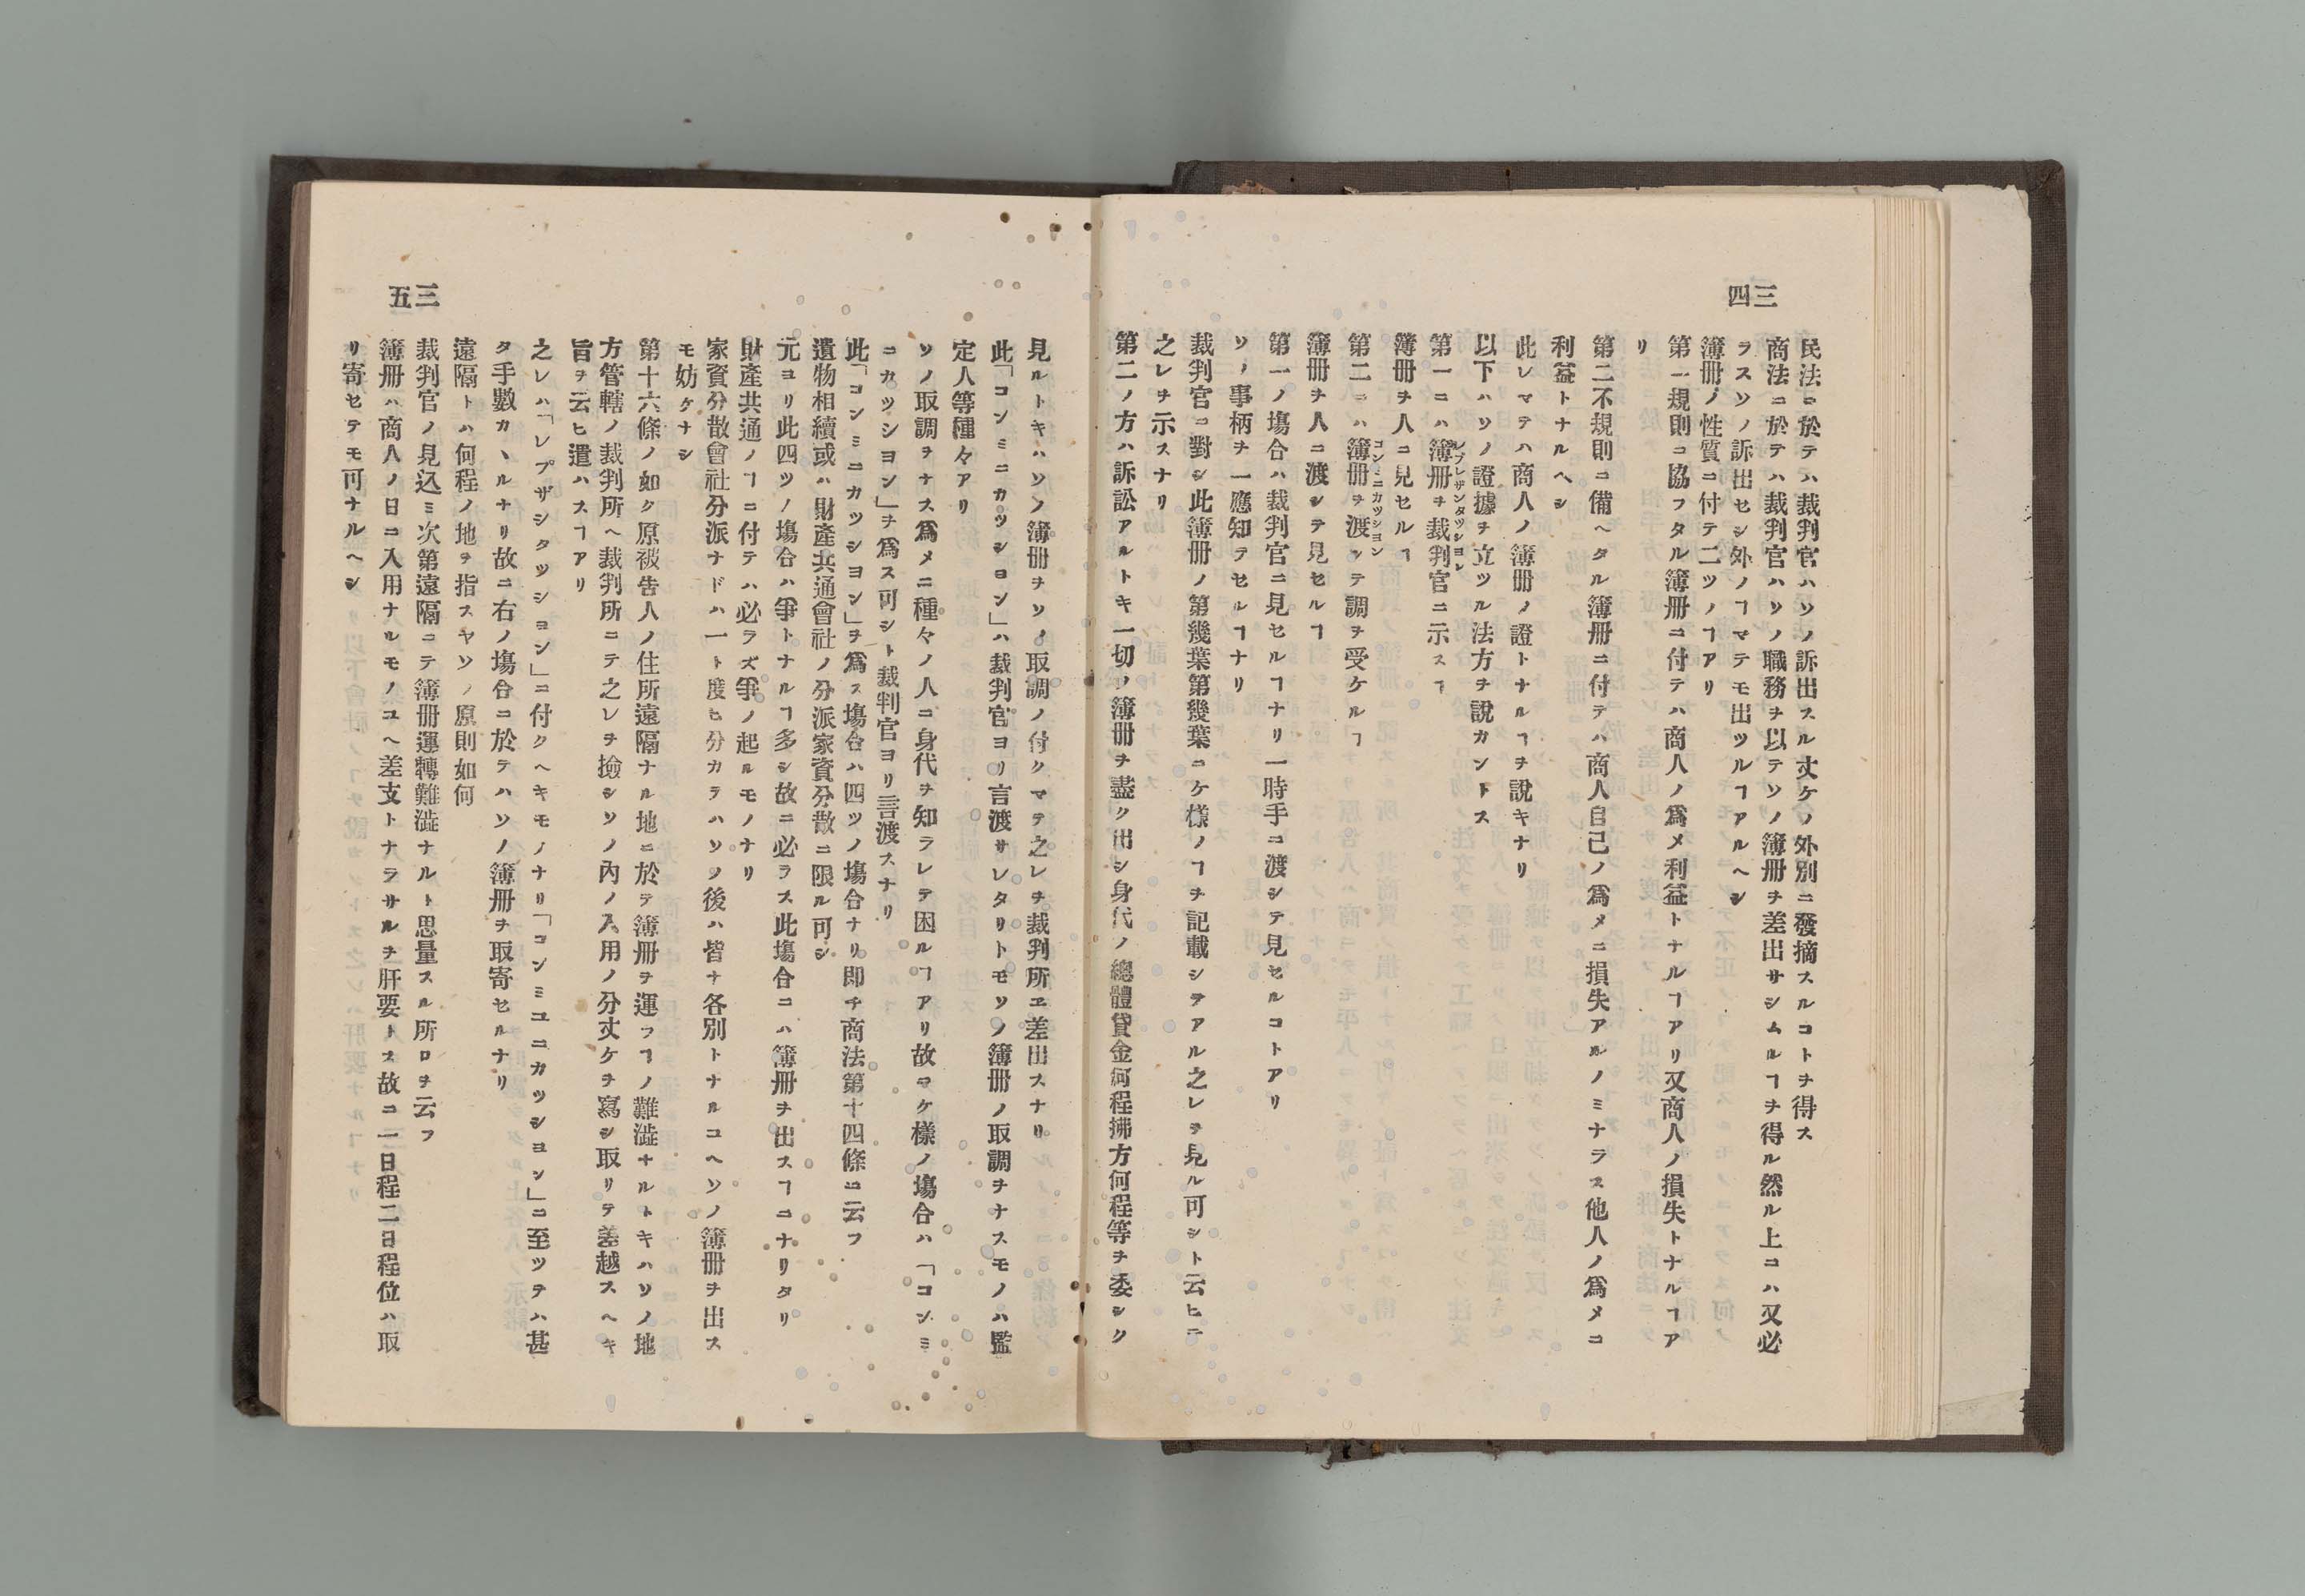 三四
民法ニ於テハ裁判官ハソノ訴出スル丈ケノ外別ニ發摘スルコトヲ得ス
商法ニ於テハ裁判官ハソノ職務ヲ以テソノ簿册ヲ差出サシムルヿヲ得ル然ル上ニハ又必
ラスソノ訴出セシ外ノヿマテモ出ツルヿアルヘシ
簿册ノ性質ニ付テ二ツノヿアリ
第一規則ニ協フタル簿册ニ付テハ商人ノ爲メ利益トナルヿアリ又商人ノ損失トナルヿア
リ
第二不規則ニ備ヘタル簿册ニ付テハ商人自己ノ爲メニ損失アルノミナラス他人ノ爲メニ
利益トナルヘシ
此レマテハ商人ノ簿册ノ證トナルヿヲ説キナリ
以下ハソノ證據ヲ立ツル法方ヲ説カントス
第一ニハ簿册ヲ裁判官ニ示スヿ
レプレザンタツシヨン
簿册ヲ人ニ見セルヿ
第二ニハ簿册ヲ渡ツテ調ヲ受ケルヿ
コンミニカツシヨン
簿册ヲ人ニ渡シテ見セルヿ
第一ノ塲合ハ裁判官ニ見セルヿナリ一時手ニ渡シテ見セルコトアリ
ソノ事柄ヲ一應知ラセルヿナリ
裁判官ニ對シ此簿册ノ第幾葉第幾葉ニケ様ノヿヲ記載シテアル之レヲ見ル可シト云ヒテ
之レヲ示スナリ
第二ノ方ハ訴訟アルトキ一切ノ簿册ヲ盡ク出シ身代ノ總體貸金何程拂方何程等ヲ委シク
三五
見ルトキハソノ簿册ヲソノ取調ノ付クマテ之レヲ裁判所ヱ差出スナリ
此「コンミニカツシヨン」ハ裁判官ヨリ言渡サレタリトモソノ簿册ノ取調ヲナスモノハ鑑
定人等種々アリ
ソノ取調ヲナス爲メニ種々ノ人ニ身代ヲ知ラレテ困ルヿアリ故ニケ様ノ塲合ハ「コンミ
ニカツシヨン」ヲ爲ス可シト裁判官ヨリ言渡スナリ
此「コンミニカツシヨン」ヲ爲ス塲合ハ四ツノ塲合ナリ即チ商法第十四條ニ云フ
遺物相續或ハ財產共通會社ノ分派家資分散ニ限ル可シ
元ヨリ此四ツノ塲合ハ爭トナルヿ多シ故ニ必ラス此塲合ニハ簿册ヲ出スヿニナリタリ
財產共通ノヿニ付テハ必ラズ爭ノ起ルモノナリ
家資分散會社分派ナドハ一ト度ヒ分カラハソノ後ハ皆ナ各別トナルユヘソノ簿册ヲ出ス
モ妨ケナシ
第十六條ノ如ク原被告人ノ住所遠隔ナル地ニ於テ簿册ヲ運フヿノ難澁ナルトキハソノ地
方管轄ノ裁判所ヘ裁判所ニテ之レヲ撿シソノ內ノ入用ノ分丈ケヲ寫シ取リテ差越スヘキ
旨ヲ云ヒ遣ハスヿアリ
之レハ「レプザシタツシヨン」ニ付クヘキモノナリ「コンミユニカツシヨン」ニ至ツテハ甚
タ手數カヽルナリ故ニ右ノ塲合ニ於テハソノ簿册ヲ取寄セルナリ
遠隔トハ何程ノ地ヲ指スヤソノ原則如何
裁判官ノ見込ミ次第遠隔ニテ簿册運轉難澁ナルト思量スル所ロヲ云フ
簿册ハ商人ノ日ニ入用ナルモノユヘ差支トナラサルヲ肝要トス故ニ一日程二日程位ハ取
リ寄セテモ可ナルヘシ